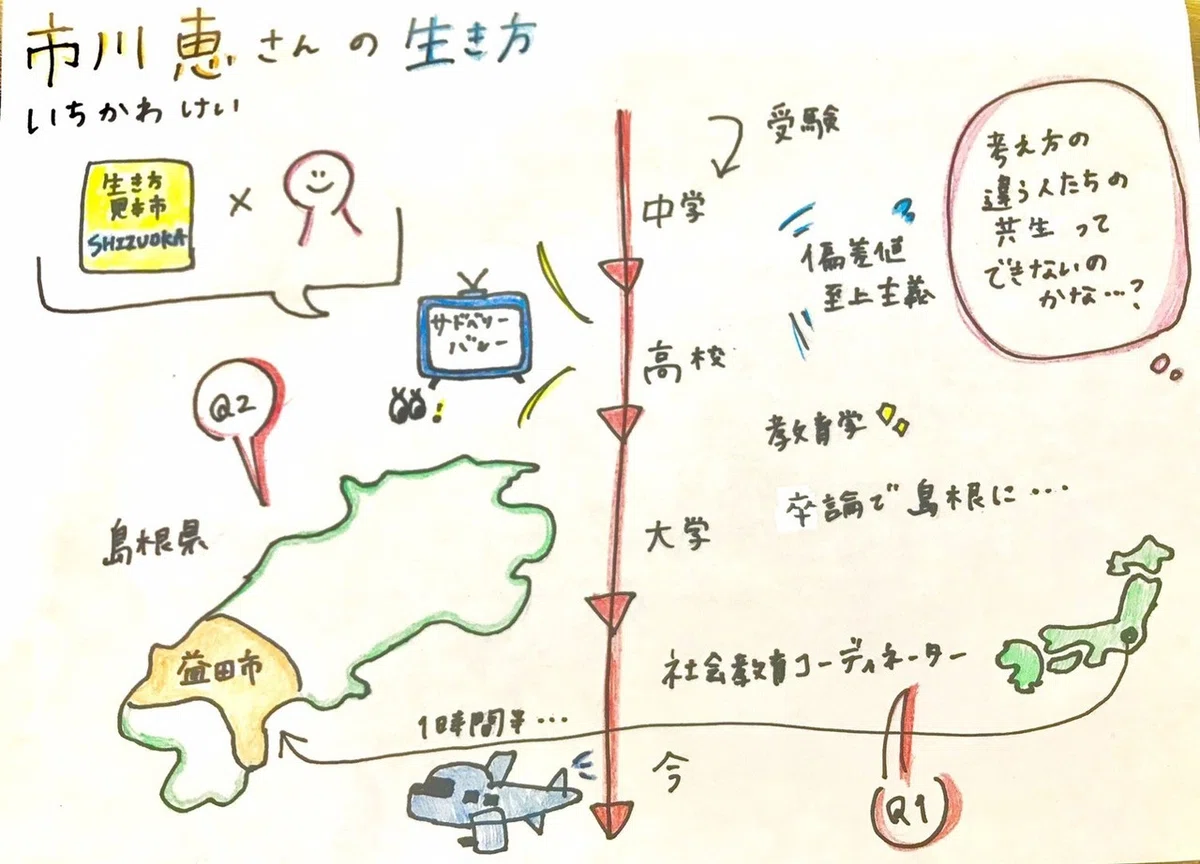 市川 恵さんの生き方
いちかわ けい
生き方
見本市
SHIZUOKA
×
受験
中学
偏差値
至上主義
考え方の
違う人たちの
共生って
できないの
かな…?
サドベリー
バレー
高校
教育学
卒論で島根に…
大学
Q2
島根県
益田市
社会教育コーディネーター
1時間半…
今
Q1